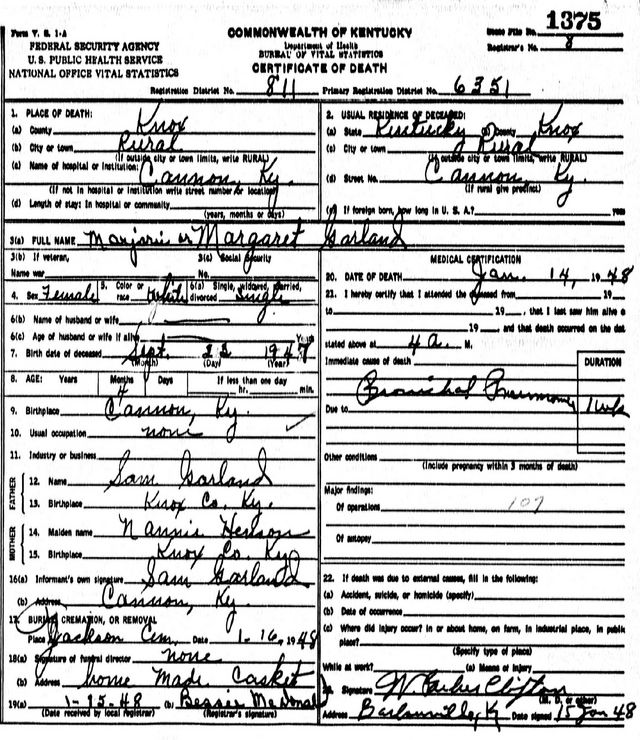 1375
Form V. S. 1-A
COMMONWEALTH OF KENTUCKY
State File No.
FEDERAL SECURITY AGENCY
Department of Health
Registrar's No. 8
U. S. PUBLIC HEALTH SERVICE
BUREAU OF VITAL STATISTICS
NATIONAL OFFICE VITAL STATISTICS
CERTIFICATE OF DEATH
Registration District No. 811 Primary Registration District No. 6351
1. PLACE OF DEATH:
(a) County Knox
(b) City or town Rural
(If outside city or town limits, write RURAL)
(c) Name of hospital or institution: Cannon, Ky.
(If not in hospital or institution write street number or location)
(d) Length of stay: In hospital or community
(years, months or days)
2. USUAL RESIDENCE OF DECEASED:
(a) State Kentucky (b) County Knox
(c) City or town Rural
(If outside city or town limits, write RURAL)
(d) Street No. Cannon, Ky.
(If rural give precinct)
If foreign born, how long in U. S. A.? years
3(a) FULL NAME Marjorie or Margaret Garland
3(b) If veteran, 3(c) Social Security
Name war No.
4. Sex Female 5. Color or race White 6(a) Single, widowed, married, divorced Single
6(b) Name of husband or wife
6(c) Age of husband or wife if alive Years
7. Birth date of deceased Sept. 1947
(Month) (Day) (Year)
8. AGE: Years Months Days If less than one day
4 hr. min.
9. Birthplace Cannon, Ky.
10. Usual occupation none
11. Industry or business
FATHER
12. Name Sam Garland
13. Birthplace Knox Co. Ky.
MOTHER
14. Maiden name Nannie Henson
15. Birthplace Knox Co. Ky
16(a) Informant's own signature Sam Garland
(b) Address Cannon, Ky.
17. BURIAL, CREMATION, OR REMOVAL
Place Jackson Cem, Date 1-16, 1948
18(a) Signature of funeral director none
(b) Address home Made Casket
19(a) 1-15-48 (b) Bessie McDonald
(Date received by local registrar) (Registrar's signature)
MEDICAL CERTIFICATION
20. DATE OF DEATH Jan. 14, 1948
21. I hereby certify that I attended the deceased from 19
to 19 , that I last saw him alive o
19 , and that death occurred on the date
stated above at 4 a. M.
Immediate cause of death DURATION
Bronichal Pneumonia 1 wk
Due to
Other conditions
(Include pregnancy within 3 months of death)
Major findings:
Of operations 107
Of autopsy
22. If death was due to external causes, fill in the following:
(a) Accident, suicide, or homicide (specify)
(b) Date of occurrence
(c) Where did injury occur? in or about home, on farm, in industrial place, in public
place?
(Specify type of place)
While at work? (e) Means of injury
Signature W. Parker Clifton
(M. D. or other)
Address Barbourville, Ky Date signed 15 Jan 48